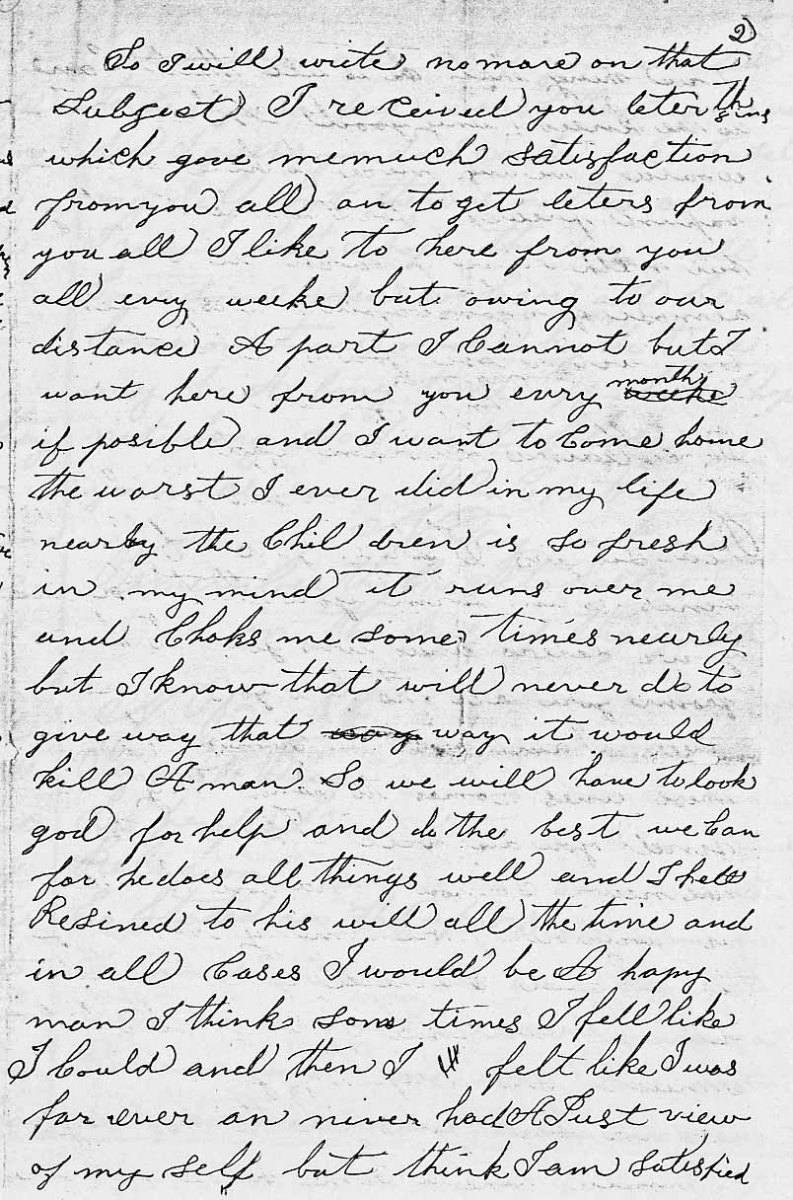 2)
So I will write no more on that
Subgect I received you leter
which gove me much satisfaction
from you all an to get leters from
you all I like to here from you
all evry weeke but owing to our
distance A part I Cannot but I
want here from you evry weeke month
if posible and I want to Come home
the worst I ever did in my life
nearly the Chil dren is so fresh
in my mind it runs over me
and Choks me some times nearly
but I know that will never do to
give way that way way it would
kill A man So we will have to look
god for help and do the best we Can
for he does all things well and I
Resined to his will all the time and
in all Cases I would be A hapy
man I think som times I fell like
I Could and then I felt like I was
far ever an niver had A Just view
of my self but think I am satisfied